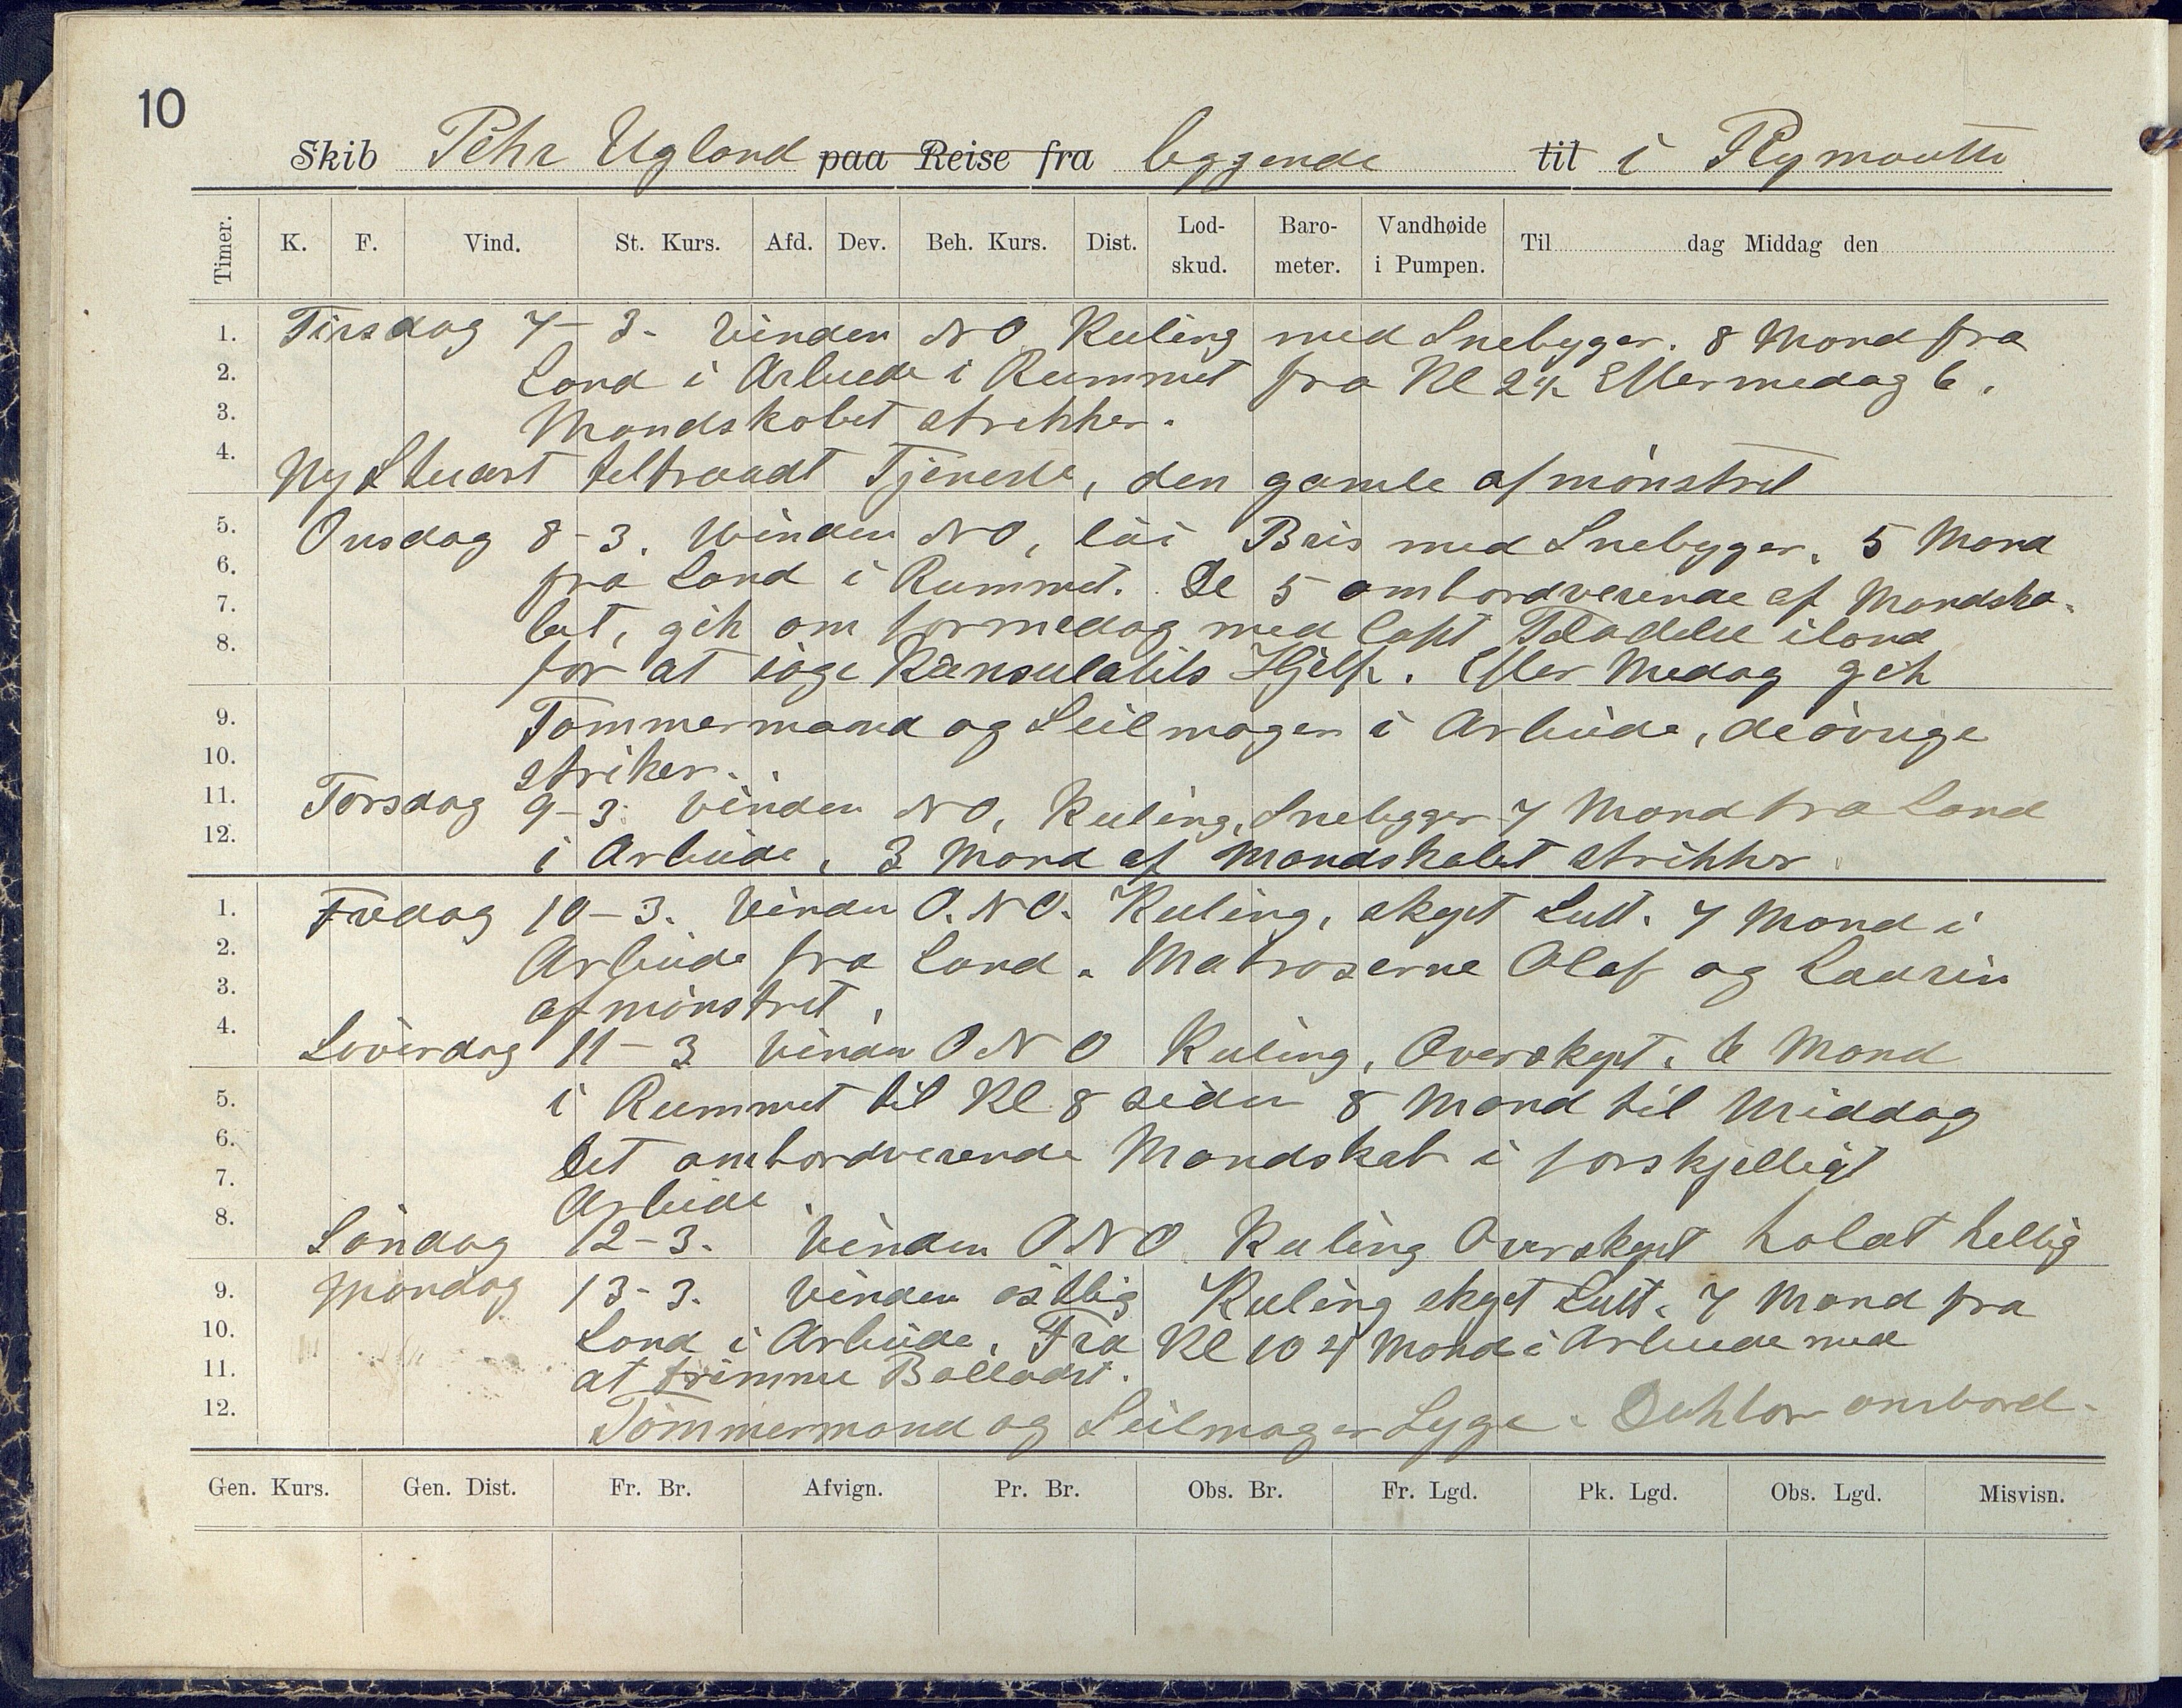 10
Skib Pehr Ugland paa Reise fra liggende til i Plymouth
Timer. K. F. Vind. St. Kurs. Afd. Dev. Beh. Kurs. Dist. Lod-skud. Baro-meter. Vandhøide i Pumpen. Til dag Middag den
1. Tirsdag 7-3. Vinden NO Kuling med Snebyger. 8 Mand fra
2. Land i Arbeide i Rummet fra Kl 2 Eftermedag 6.
3. Mandskabet strikker.
4. Ny Stuart tiltraadt Tjeneste, den gamle afmønstret
5. Onsdag 8-3. Vinden NO, løi Bris med Snebyger. 5 Mand
6. fra Land i Rummet. De 5 ombordverende af Mandska-
7. bet, gik om formedag med Capt Tilladelse iland
8. for at søge Kansulatets Hjelp. Efter Medag gik
9. Tømmermand og Seilmager i Arbeide, de øvrige
10. striker.
11. Torsdag 9-3. Vinden NO, Kuling, Snebyger 7 Mand fra Land
12. i Arbeide, 3 Mand af Mandskabet strikker.
1. Fredag 10-3. Vinden O.NO. Kuling, skyet Luft. 7 Mand i
2. Arbeide fra Land. Matroserne Olaf og Laurin
3. afmønstret,
4. Løverdag 11-3 Vinden ONO Kuling, Overskyet. 6 Mand
5. i Rummet til Kl 8 siden 8 Mand til Middag
6. Det ombordverende Mandskab i forskjelligt
7. Arbeide.
8. Søndag 12-3. Vinden ONO Kuling Overskyet holdt hellig
9. Mandag 13-3. Vinden østlig Kuling skyet Luft. 7 Mand fra
10. Land i Arbeide. Fra Kl 10 4 Mand i Arbeide med
11. at trimme Balladst.
12. Tømmermand og Seilmager Syge. Doktor ombord.
Gen. Kurs. Gen. Dist. Fr. Br. Afvign. Pr. Br. Obs. Br. Fr. Lgd. Pk. Lgd. Obs. Lgd. Misvisn.